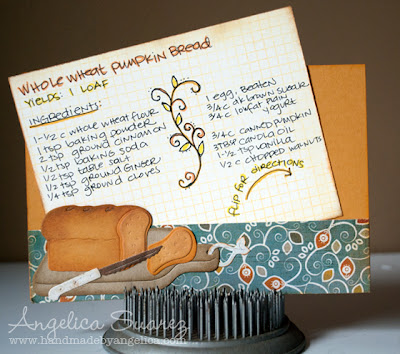 Whole Wheat Pumpkin Bread
Yields: 1 Loaf
Ingredients:
1-1/2 c whole wheat flour
1 tsp baking powder
2 tsp ground cinnamon
1/2 tsp baking soda
1/2 tsp table salt
1/2 tsp ground ginger
1/4 tsp ground cloves
1 egg, beaten
3/4 c dk brown sugar
3/4 c lowfat plain
yogurt
3/4 c canned pumpkin
3 tbsp canola oil
1-1/2 tsp vanilla
1/2 c chopped walnuts
flip for directions
Angelica Suarez
www.handmadebyangelica.com